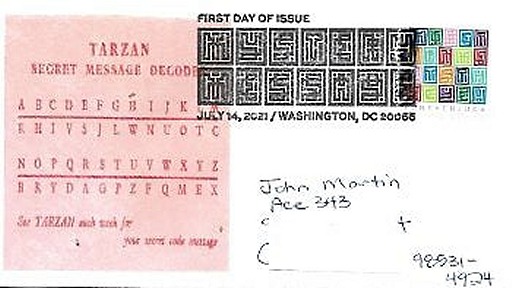 FIRST DAY OF ISSUE
MYSTERY
MESSAGE
JULY 14, 2021 / WASHINGTON, DC 20066
TARZAN
SECRET MESSAGE DECODE
A B C D E F G H I J K L M
K H I V S J L W N U O T C
N O P Q R S T U V W X Y Z
B R Y D A G P Z F Q M E X
See TARZAN each week for
your secret code message
John Martin
Ace 343
98531-
4924